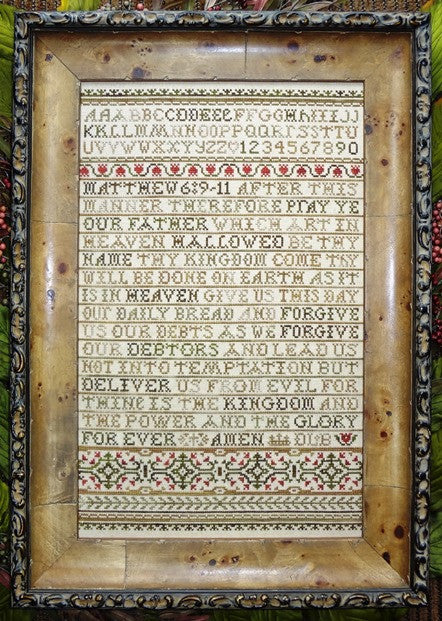 AAABBCCDDEEEFFGGHHIIJJ
KKLLMMNNOOPPQQRRSSTTU
UVVWWXXYYZZ 1234567890
MATTHEW 6:9-11 AFTER THIS
MANNER THEREFORE PRAY YE
OUR FATHER WHICH ART IN
HEAVEN HALLOWED BE THY
NAME THY KINGDOM COME THY
WILL BE DONE ON EARTH AS IT
IS IN HEAVEN GIVE US THIS DAY
OUR DAILY BREAD AND FORGIVE
US OUR DEBTS AS WE FORGIVE
OUR DEBTORS AND LEAD US
NOT INTO TEMPTATION BUT
DELIVER US FROM EVIL FOR
THINE IS THE KINGDOM AND
THE POWER AND THE GLORY
FOR EVER AMEN